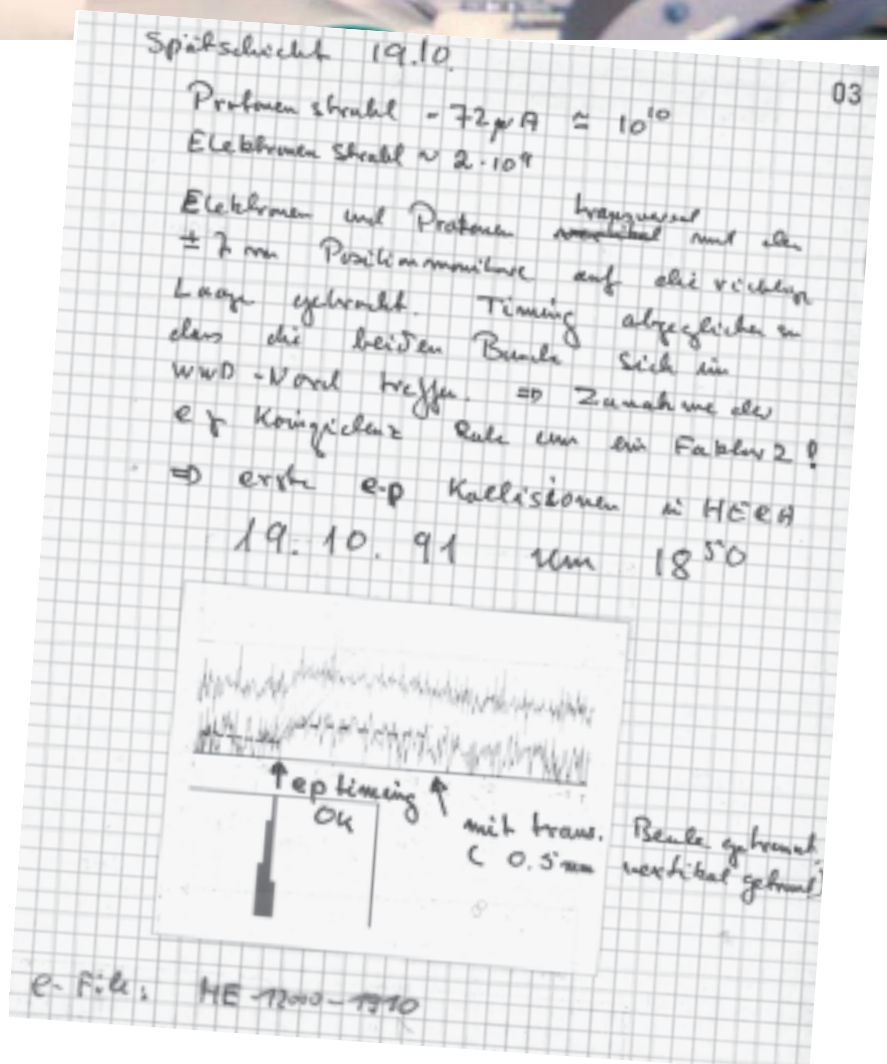 Spätschicht 19.10.
03
Protonen strahl - 72µA ≃ 10¹⁰
Elektronen Strahl ~ 2·10⁹
Elektronen und Protonen transversal mit den
± 7 mm Positionmonitore auf die richtige
Lage gebracht. Timing abgeglichen so
dass die beiden Bunche sich im
WWD-Nord treffen. ⇒ Zunahme der
e γ Koinzidenz Rate um ein Faktor 2!
⇒ erste e-p Kollisionen in HERA
19. 10. 91 um 18⁵⁰
ep timing
OK
mit trans. Beule getrennt
( 0.5 mm vertikal getrennt)
e-File: HE